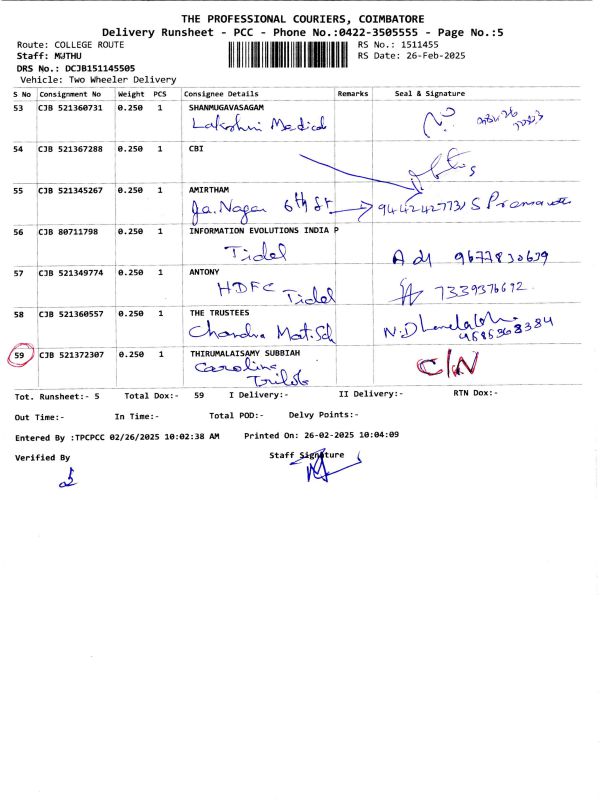 THE PROFESSIONAL COURIERS, COIMBATORE
Delivery Runsheet - PCC - Phone No.:0422-3505555 - Page No.:5
Route: COLLEGE ROUTE RS No.: 1511455
Staff: MUTHU RS Date: 26-Feb-2025
DRS No.: DCJB151145505
Vehicle: Two Wheeler Delivery
S No Consignment No Weight PCS Consignee Details Remarks Seal & Signature
53 CJB 521360731 0.250 1 SHANMUGAVASAGAM
Lakshmi Medical
54 CJB 521367288 0.250 1 CBI
55 CJB 521345267 0.250 1 AMIRTHAM
Ja. Nagar 6th St 9442427731 S
56 CJB 80711798 0.250 1 INFORMATION EVOLUTIONS INDIA P
Tidel 9677830679
57 CJB 521349774 0.250 1 ANTONY
HDFC Tidel 7339376692
58 CJB 521360557 0.250 1 THE TRUSTEES
Chandra Mat. Sch N. 9585368384
59 CJB 521372307 0.250 1 THIRUMALAISAMY SUBBIAH
Caroline C/N
Tot. Runsheet:- 5 Total Dox:- 59 I Delivery:- II Delivery:- RTN Dox:-
Out Time:- In Time:- Total POD:- Delvy Points:-
Entered By :TPCPCC 02/26/2025 10:02:38 AM Printed On: 26-02-2025 10:04:09
Verified By Staff Signature